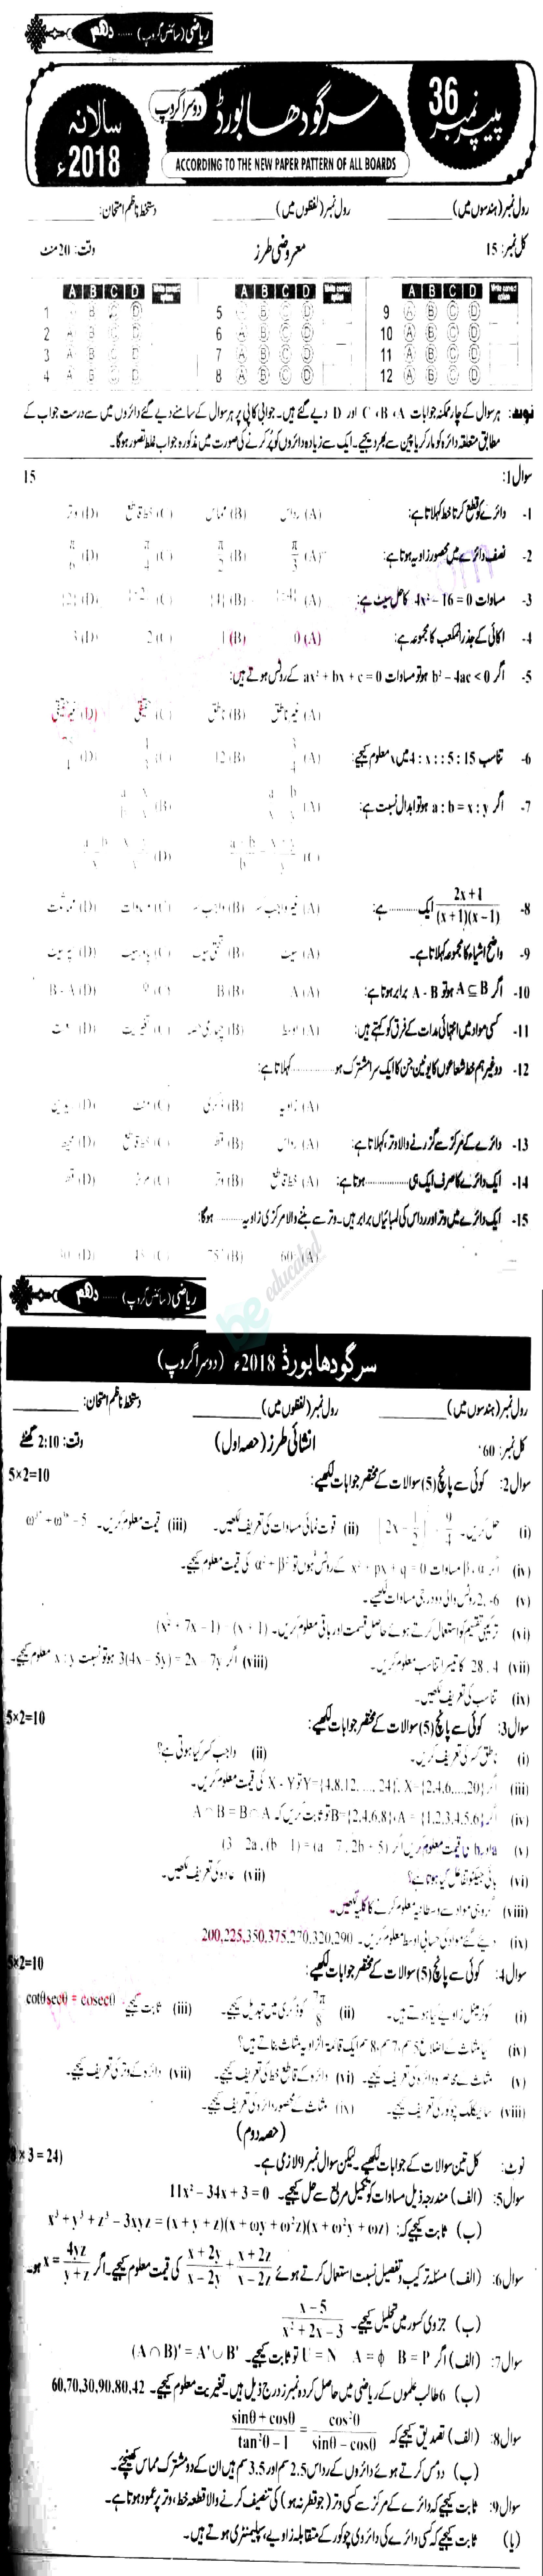 ریاضی (سائنس گروپ) ...... دہم
پیپر نمبر 36
سرگودھا بورڈ
دوسرا گروپ
سالانہ 2018ء
ACCORDING TO THE NEW PAPER PATTERN OF ALL BOARDS
رول نمبر (ہندسوں میں) ________ رول نمبر (لفظوں میں) ________ دستخط ناظم امتحان: ________
کل نمبر: 15 معروضی طرز وقت: 20 منٹ
A B C D Write correct option A B C D Write correct option A B C D Write correct option
1 A B C D 5 A B C D 9 A B C D
2 A B C D 6 A B C D 10 A B C D
3 A B C D 7 A B C D 11 A B C D
4 A B C D 8 A B C D 12 A B C D
نوٹ: ہر سوال کے چار ممکنہ جوابات A ، B ، C اور D دیے گئے ہیں۔ جوابی کاپی پر ہر سوال کے سامنے دیے گئے دائروں میں سے درست جواب کے
مطابق متعلقہ دائرہ کو مارکر یا پین سے بھر دیجیے۔ ایک سے زیادہ دائروں کو پُر کرنے کی صورت میں مذکورہ جواب غلط تصور ہوگا۔
سوال 1: 15
1- دائرے کو قطع کرتا خط کہلاتا ہے: (A) رداس (B) مماس (C) خط قاطع (D) وتر
2- نصف دائرے میں محصور زاویہ ہوتا ہے: (A) π/3 (B) π/2 (C) π/4 (D) π/6
3- مساوات 4x² – 16 = 0 کا حل سیٹ ہے: (A) (B) {4} (C) (D) {2}
4- اکائی کے جذرالمکعب کا مجموعہ ہے: (A) 0 (B) 1 (C) 2 (D) 3
5- اگر b² – 4ac < 0 ہو تو مساوات ax² + bx + c = 0 کے روٹس ہوتے ہیں:
(A) غیر ناطق (B) ناطق (C) حقیقی (D) غیر حقیقی
6- تناسب 4 : x : : 5 : 15 میں x معلوم کیجیے: (A) 3/4 (B) 12 (C) 4/3 (D)
7- اگر a : b = x : y ہو تو ابدال نسبت ہے: (A) (B)
(C) (D)
8- (2x + 1)/((x + 1)(x – 1)) ایک .......... ہے: (A) غیر واجب کسر (B) واجب کسر (C) مساوات (D) مماثلت
9- واضح اشیاء کا مجموعہ کہلاتا ہے۔ (A) سیٹ (B) تحتی سیٹ (C) پاور سیٹ (D) سپر سیٹ
10- اگر A ⊆ B ہو تو A - B برابر ہوتا ہے: (A) A (B) B (C) φ (D) B - A
11- کسی مواد میں انتہائی مدات کے فرق کو کہتے ہیں: (A) اوسط (B) چہارمی حصہ (C) تغیریت (D) سعت
12- دو غیر ہم خط شعاعوں کا یونین جن کا ایک سرا مشترک ہو .............. کہلاتا ہے:
(A) زاویہ (B) ڈگری (C) منٹ (D) ریڈین
13- دائرے کے مرکز سے گزرنے والا وتر کہلاتا ہے: (A) رداس (B) قطر (C) خط قاطع (D) محیط
14- ایک دائرے کا صرف ایک ہی .............. ہوتا ہے: (A) خط قاطع (B) وتر (C) مرکز (D) قطر
15- ایک دائرے میں وتر اور رداس کی لمبائیاں برابر ہیں۔ وتر سے بننے والا مرکزی زاویہ ......... ہوگا:
(A) 60° (B) 75° (C) 45° (D) 30°
be educated
ریاضی (سائنس گروپ) ...... دہم
سرگودھا بورڈ 2018ء (دوسرا گروپ)
رول نمبر (ہندسوں میں) ________ رول نمبر (لفظوں میں) ________ دستخط ناظم امتحان: ________
کل نمبر: 60 انشائی طرز (حصہ اول) وقت: 2:10 گھنٹے
سوال 2: کوئی سے پانچ (5) سوالات کے مختصر جوابات لکھیے: 5×2=10
(i) حل کریں۔ (ii) قوت نمائی مساوات کی تعریف لکھیں۔ (iii) قیمت معلوم کریں۔
(iv) اگر α، β مساوات x² + px + q = 0 کے روٹس ہوں تو α² + β² کی قیمت معلوم کیجیے۔
(v) 2، -6 روٹس والی دو درجی مساوات لکھیے۔
(vi) ترکیبی تقسیم کو استعمال کرتے ہوئے حاصل قسمت اور باقی معلوم کریں۔ (x² + 7x – 1) ÷ (x + 1)
(vii) 28، 4 کا تیسرا تناسب معلوم کریں۔ (viii) اگر 3(4x – 5y) = 2x – 7y ہو تو نسبت x : y معلوم کیجیے۔
(ix) تناسب کی تعریف لکھیں۔
سوال 3: کوئی سے پانچ (5) سوالات کے مختصر جوابات لکھیے: 5×2=10
(i) ناطق کسر کی تعریف کریں۔ (ii) واجب کسر کیا ہوتی ہے؟
(iii) اگر X = {2,4,6,...,20} ، Y = {4,8,12,...,24} تو X - Y کی قیمت معلوم کریں۔
(iv) اگر A = {1,2,3,4,5,6} ، B={2,4,6,8} تو ثابت کریں کہ A ∩ B = B ∩ A
(v) a اور b کی قیمت معلوم کریں اگر (3 – 2a , b – 1) = (a – 7 , 2b + 5)
(vi) ہائی جیکٹو تفاعل کیا ہوتا ہے؟ (vii) عادہ کی تعریف لکھیں۔
(viii) گروہی مواد سے وسطانیہ معلوم کرنے کا کلیہ لکھیں۔
(ix) دیے گئے مواد کی حسابی اوسط معلوم کریں۔ 200,225,350,375,270,320,290
سوال 4: کوئی سے پانچ (5) سوالات کے مختصر جوابات لکھیے: 5×2=10
(i) کوٹرمینل زاویے کیا ہوتے ہیں۔ (ii) 7π/8 کو ڈگری میں تبدیل کیجیے۔ (iii) ثابت کیجیے cotθ secθ = cosecθ
(iv) کیا مثلث کے اضلاع 5 سم، 7 سم، 8 سم ایک قائمۃ الزاویہ مثلث بناتے ہیں؟
(v) مثلث کے محاصر دائرہ کی تعریف کیجیے۔ (vi) دائرہ کے قاطع خط کی تعریف کیجیے۔ (vii) دائرہ کے وتر کی تعریف کیجیے۔
(viii) سائیکلک چوکور کی تعریف کیجیے۔ (ix) مثلث کے محصور دائرہ کی تعریف کیجیے۔
(حصہ دوم)
نوٹ: کل تین سوالات کے جوابات لکھیے۔ لیکن سوال نمبر 9 لازمی ہے۔ (8 × 3 = 24)
سوال 5: (الف) مندرجہ ذیل مساوات کو تکمیل مربع سے حل کیجیے۔ 11x² – 34x + 3 = 0
(ب) ثابت کیجیے کہ: x³ + y³ + z³ – 3xyz = (x + y + z)(x + ωy + ω²z)(x + ω²y + ωz)
سوال 6: (الف) مسئلہ ترکیب و تفصیل نسبت استعمال کرتے ہوئے (x + 2y)/(x – 2y) + (x + 2z)/(x – 2z) کی قیمت معلوم کیجیے۔ اگر x = 4yz/(y + z) ہو۔
(ب) جزوی کسور میں تحلیل کیجیے۔ (x – 5)/(x² + 2x – 3)
سوال 7: (الف) اگر U = N A = φ B = P تو ثابت کیجیے۔ (A ∩ B)' = A' ∪ B'
(ب) 6 طالب علموں کے ریاضی میں حاصل کردہ نمبرز درج ذیل ہیں۔ تغیریت معلوم کیجیے۔ 60,70,30,90,80,42
سوال 8: (الف) تصدیق کیجیے کہ (sinθ + cosθ)/(tan²θ – 1) = cos²θ/(sinθ – cosθ)
(ب) دو مس کرتے ہوئے دائروں کے رداس 2.5 سم اور 3.5 سم ہیں ان کے دو مشترک مماس کھینچئے۔
سوال 9: ثابت کیجیے کہ دائرے کے مرکز سے کسی وتر (جو قطر نہ ہو) کی تنصیف کرنے والا قطعہ خط، وتر پر عمود ہوتا ہے۔
(یا) ثابت کیجیے کہ کسی دائرے کی دائروی چوکور کے متقابلہ زاویے، سپلیمنٹری ہوتے ہیں۔